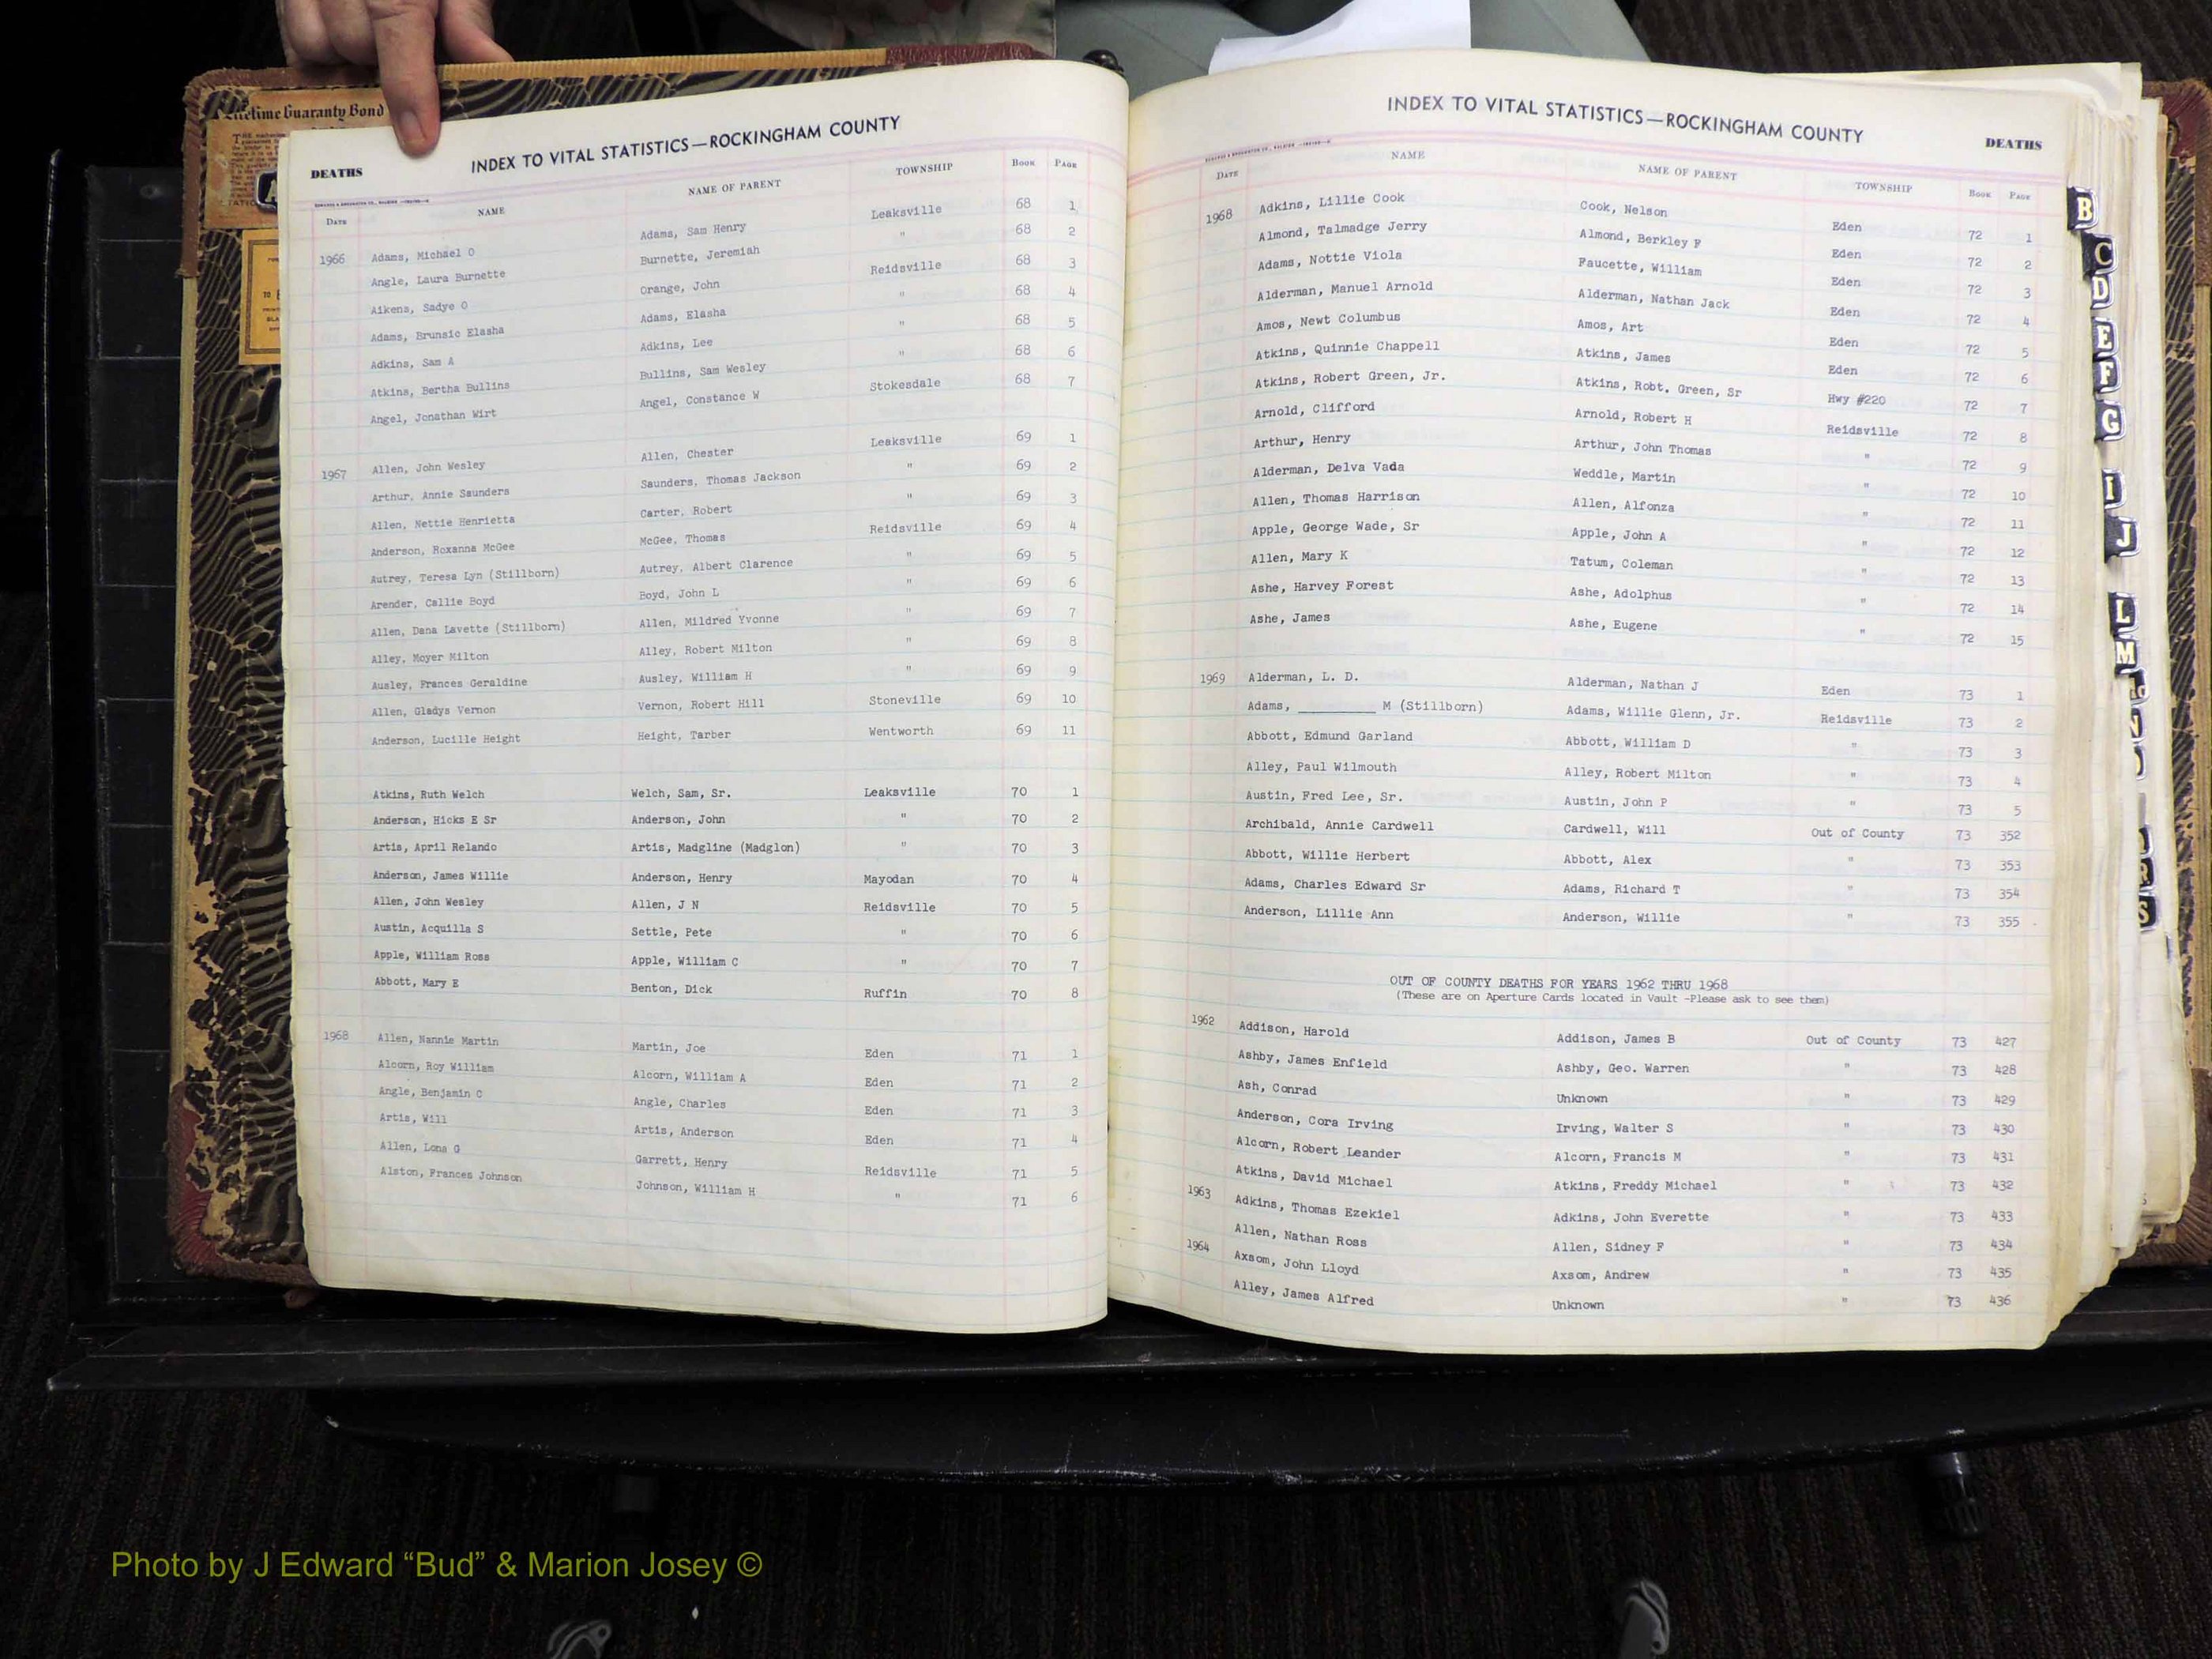 Lifetime Guaranty Bond
DEATHS
INDEX TO VITAL STATISTICS—ROCKINGHAM COUNTY
DATE NAME NAME OF PARENT TOWNSHIP BOOK PAGE
1966 Adams, Michael O Adams, Sam Henry Leaksville 68 1
Angle, Laura Burnette Burnette, Jeremiah " 68 2
Aikens, Sadye O Orange, John Reidsville 68 3
Adams, Brunsic Elasha Adams, Elasha " 68 4
Adkins, Sam A Adkins, Lee " 68 5
Atkins, Bertha Bullins Bullins, Sam Wesley " 68 6
Angel, Jonathan Wirt Angel, Constance W Stokesdale 68 7
1967 Allen, John Wesley Allen, Chester Leaksville 69 1
Arthur, Annie Saunders Saunders, Thomas Jackson " 69 2
Allen, Nettie Henrietta Carter, Robert " 69 3
Anderson, Roxanna McGee McGee, Thomas Reidsville 69 4
Autrey, Teresa Lyn (Stillborn) Autrey, Albert Clarence " 69 5
Arender, Callie Boyd Boyd, John L " 69 6
Allen, Dana Lavette (Stillborn) Allen, Mildred Yvonne " 69 7
Alley, Moyer Milton Alley, Robert Milton " 69 8
Ausley, Frances Geraldine Ausley, William H " 69 9
Allen, Gladys Vernon Vernon, Robert Hill Stoneville 69 10
Anderson, Lucille Height Height, Tarber Wentworth 69 11
Atkins, Ruth Welch Welch, Sam, Sr. Leaksville 70 1
Anderson, Hicks E Sr Anderson, John " 70 2
Artis, April Relando Artis, Madgline (Madglon) " 70 3
Anderson, James Willie Anderson, Henry Mayodan 70 4
Allen, John Wesley Allen, J N Reidsville 70 5
Austin, Acquilla S Settle, Pete " 70 6
Apple, William Ross Apple, William C " 70 7
Abbott, Mary E Benton, Dick Ruffin 70 8
1968 Allen, Nannie Martin Martin, Joe Eden 71 1
Alcorn, Roy William Alcorn, William A Eden 71 2
Angle, Benjamin C Angle, Charles Eden 71 3
Artis, Will Artis, Anderson Eden 71 4
Allen, Lona G Garrett, Henry Reidsville 71 5
Alston, Frances Johnson Johnson, William H " 71 6
INDEX TO VITAL STATISTICS—ROCKINGHAM COUNTY
DEATHS
DATE NAME NAME OF PARENT TOWNSHIP BOOK PAGE
1968 Adkins, Lillie Cook Cook, Nelson Eden 72 1
Almond, Talmadge Jerry Almond, Berkley F Eden 72 2
Adams, Nottie Viola Faucette, William Eden 72 3
Alderman, Manuel Arnold Alderman, Nathan Jack Eden 72 4
Amos, Newt Columbus Amos, Art Eden 72 5
Atkins, Quinnie Chappell Atkins, James Eden 72 6
Atkins, Robert Green, Jr. Atkins, Robt. Green, Sr Hwy #220 72 7
Arnold, Clifford Arnold, Robert H Reidsville 72 8
Arthur, Henry Arthur, John Thomas " 72 9
Alderman, Delva Vada Weddle, Martin " 72 10
Allen, Thomas Harrison Allen, Alfonza " 72 11
Apple, George Wade, Sr Apple, John A " 72 12
Allen, Mary K Tatum, Coleman " 72 13
Ashe, Harvey Forest Ashe, Adolphus " 72 14
Ashe, James Ashe, Eugene " 72 15
1969 Alderman, L. D. Alderman, Nathan J Eden 73 1
Adams, __________ M (Stillborn) Adams, Willie Glenn, Jr. Reidsville 73 2
Abbott, Edmund Garland Abbott, William D " 73 3
Alley, Paul Wilmouth Alley, Robert Milton " 73 4
Austin, Fred Lee, Sr. Austin, John P " 73 5
Archibald, Annie Cardwell Cardwell, Will Out of County 73 352
Abbott, Willie Herbert Abbott, Alex " 73 353
Adams, Charles Edward Sr Adams, Richard T " 73 354
Anderson, Lillie Ann Anderson, Willie " 73 355
OUT OF COUNTY DEATHS FOR YEARS 1962 THRU 1968
(These are on Aperture Cards located in Vault -Please ask to see them)
1962 Addison, Harold Addison, James B Out of County 73 427
Ashby, James Enfield Ashby, Geo. Warren " 73 428
Ash, Conrad Unknown " 73 429
Anderson, Cora Irving Irving, Walter S " 73 430
Alcorn, Robert Leander Alcorn, Francis M " 73 431
Atkins, David Michael Atkins, Freddy Michael " 73 432
1963 Adkins, Thomas Ezekiel Adkins, John Everette " 73 433
Allen, Nathan Ross Allen, Sidney F " 73 434
1964 Axsom, John Lloyd Axsom, Andrew " 73 435
Alley, James Alfred Unknown " 73 436
B
C
D
E
F
G
I
J
L
M
N
R
S
Photo by J Edward “Bud” & Marion Josey ©